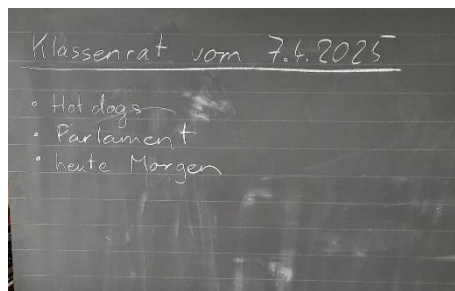 Klassenrat vom 7.4.2025
• Hotdogs
• Parlament
• heute Morgen